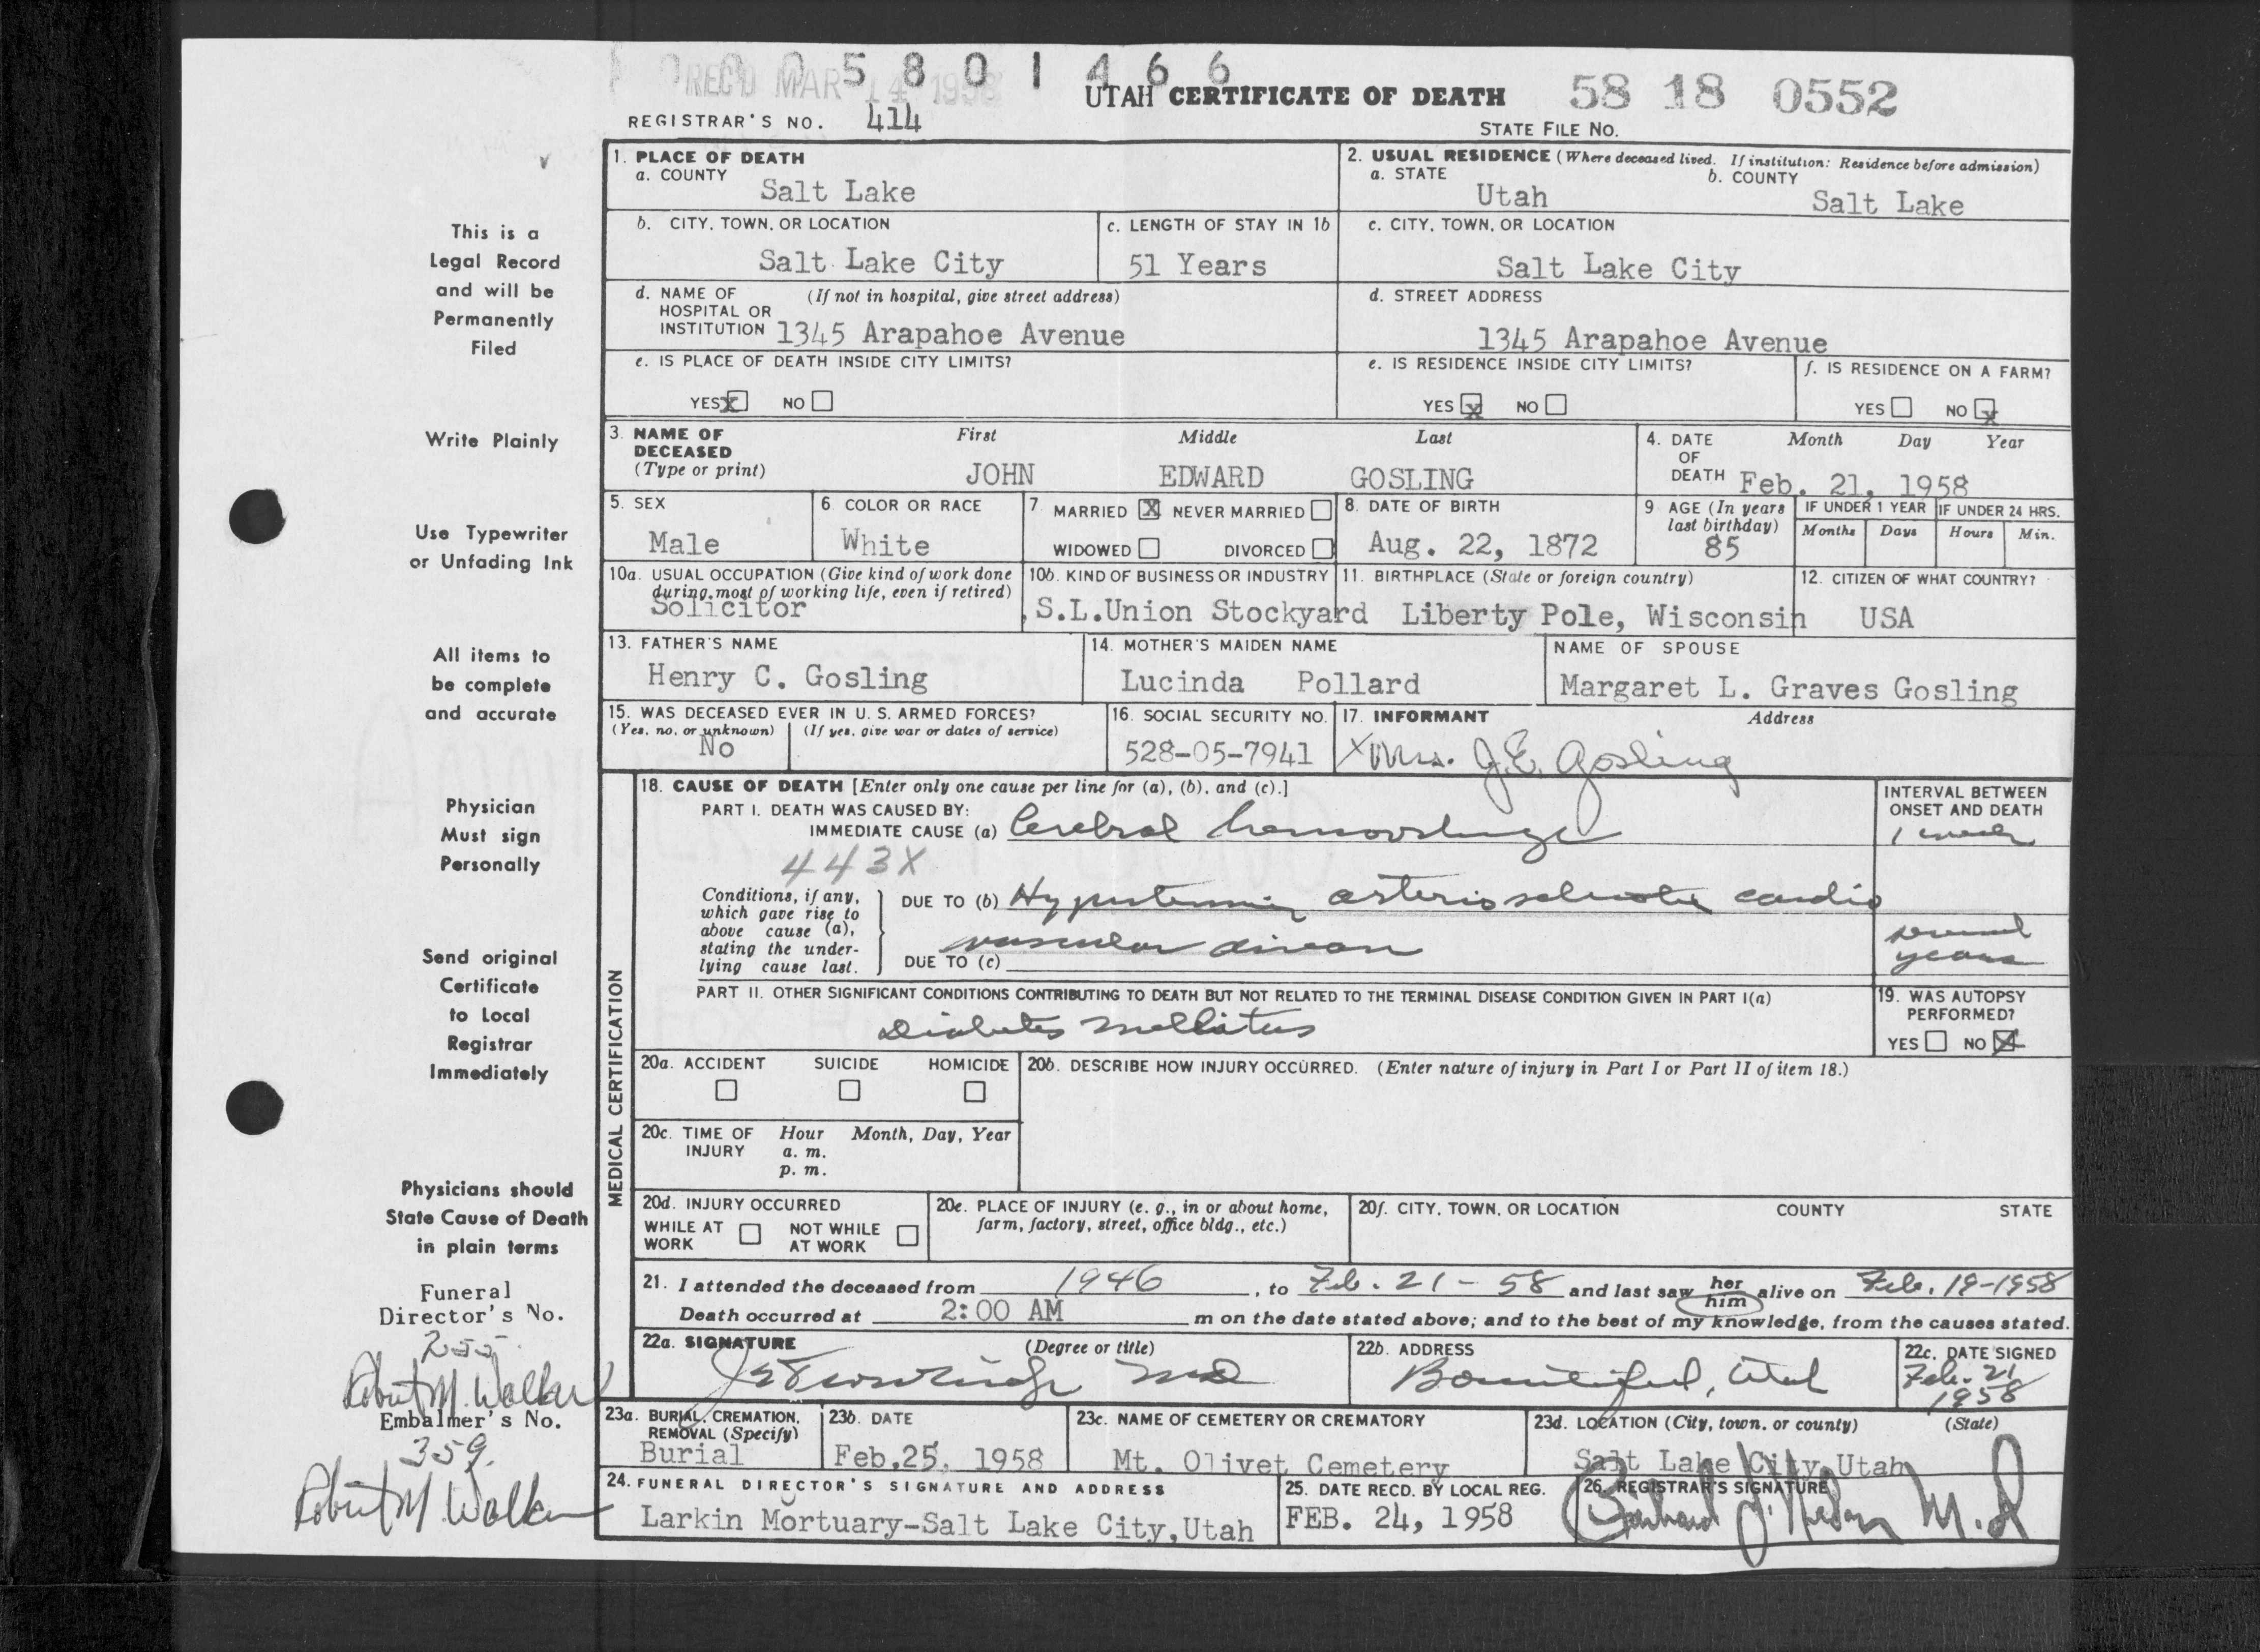 0 0 0 5 8 0 1 4 6 6
REC'D MAR 14 1958
UTAH CERTIFICATE OF DEATH 58 18 0552
REGISTRAR'S NO. 414
STATE FILE NO.
This is a
Legal Record
and will be
Permanently
Filed
Write Plainly
Use Typewriter
or Unfading Ink
All items to
be complete
and accurate
Physician
Must sign
Personally
Send original
Certificate
to Local
Registrar
Immediately
Physicians should
State Cause of Death
in plain terms
Funeral
Director's No.
255
Robert M. Walker
Embalmer's No.
359
Robert M. Walker
1. PLACE OF DEATH
a. COUNTY
Salt Lake
2. USUAL RESIDENCE (Where deceased lived. If institution: Residence before admission)
a. STATE b. COUNTY
Utah Salt Lake
b. CITY, TOWN, OR LOCATION
Salt Lake City
c. LENGTH OF STAY IN 1b
51 Years
c. CITY, TOWN, OR LOCATION
Salt Lake City
d. NAME OF (If not in hospital, give street address)
HOSPITAL OR
INSTITUTION 1345 Arapahoe Avenue
d. STREET ADDRESS
1345 Arapahoe Avenue
e. IS PLACE OF DEATH INSIDE CITY LIMITS?
YES X NO
e. IS RESIDENCE INSIDE CITY LIMITS?
YES X NO
f. IS RESIDENCE ON A FARM?
YES NO X
3. NAME OF DECEASED (Type or print)
First Middle Last
JOHN EDWARD GOSLING
4. DATE OF DEATH
Month Day Year
Feb. 21, 1958
5. SEX
Male
6. COLOR OR RACE
White
7. MARRIED X NEVER MARRIED
WIDOWED DIVORCED
8. DATE OF BIRTH
Aug. 22, 1872
9. AGE (In years
last birthday)
85
IF UNDER 1 YEAR
Months Days
IF UNDER 24 HRS.
Hours Min.
10a. USUAL OCCUPATION (Give kind of work done
during most of working life, even if retired)
Solicitor
10b. KIND OF BUSINESS OR INDUSTRY
S.L.Union Stockyard
11. BIRTHPLACE (State or foreign country)
Liberty Pole, Wisconsin
12. CITIZEN OF WHAT COUNTRY?
USA
13. FATHER'S NAME
Henry C. Gosling
14. MOTHER'S MAIDEN NAME
Lucinda Pollard
NAME OF SPOUSE
Margaret L. Graves Gosling
15. WAS DECEASED EVER IN U. S. ARMED FORCES?
(Yes, no, or unknown) (If yes, give war or dates of service)
No
16. SOCIAL SECURITY NO.
528-05-7941
17. INFORMANT Address
X Mrs. J.E. Gosling
MEDICAL CERTIFICATION
18. CAUSE OF DEATH [Enter only one cause per line for (a), (b), and (c).]
PART I. DEATH WAS CAUSED BY:
IMMEDIATE CAUSE (a) Cerebral hemorrhage
443X
INTERVAL BETWEEN
ONSET AND DEATH
1 week
Conditions, if any,
which gave rise to
above cause (a),
stating the under-
lying cause last.
DUE TO (b) Hypertensive arteriosclerotic cardio
vascular disease
DUE TO (c)
several
years
PART II. OTHER SIGNIFICANT CONDITIONS CONTRIBUTING TO DEATH BUT NOT RELATED TO THE TERMINAL DISEASE CONDITION GIVEN IN PART I(a)
Diabetes mellitus
19. WAS AUTOPSY
PERFORMED?
YES NO X
20a. ACCIDENT SUICIDE HOMICIDE
20b. DESCRIBE HOW INJURY OCCURRED. (Enter nature of injury in Part I or Part II of item 18.)
20c. TIME OF INJURY
Hour Month, Day, Year
a. m.
p. m.
20d. INJURY OCCURRED
WHILE AT WORK NOT WHILE AT WORK
20e. PLACE OF INJURY (e. g., in or about home,
farm, factory, street, office bldg., etc.)
20f. CITY, TOWN, OR LOCATION COUNTY STATE
21. I attended the deceased from 1946, to Feb. 21-58 and last saw her him alive on Feb. 19-1958
Death occurred at 2:00 AM m on the date stated above; and to the best of my knowledge, from the causes stated.
22a. SIGNATURE (Degree or title)
MD
22b. ADDRESS
Bountiful, Utah
22c. DATE SIGNED
Feb. 21
1958
23a. BURIAL, CREMATION,
REMOVAL (Specify)
Burial
23b. DATE
Feb.25, 1958
23c. NAME OF CEMETERY OR CREMATORY
Mt. Olivet Cemetery
23d. LOCATION (City, town, or county) (State)
Salt Lake City, Utah
24. FUNERAL DIRECTOR'S SIGNATURE AND ADDRESS
Larkin Mortuary-Salt Lake City, Utah
25. DATE RECD. BY LOCAL REG.
FEB. 24, 1958
26. REGISTRAR'S SIGNATURE
M.D.